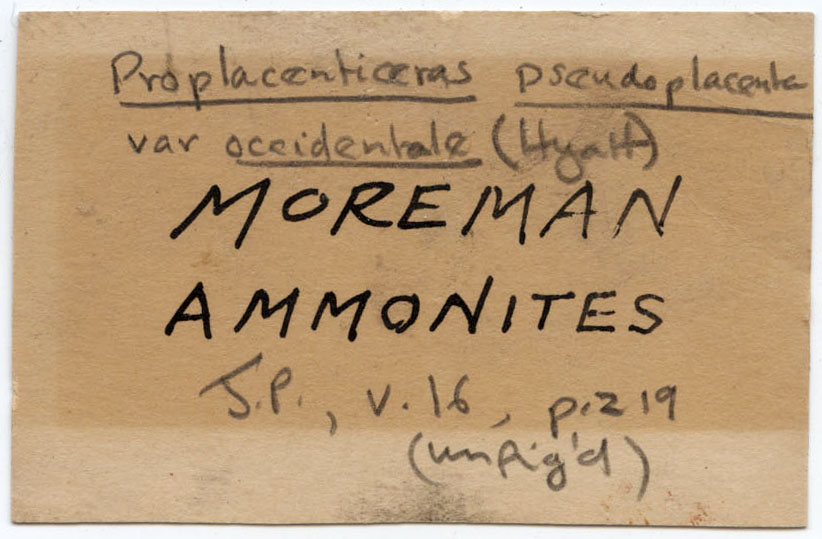 Proplacenticeras pseudoplacenta
var occidentale (Hyatt)
MOREMAN
AMMONITES
J.P., v.16, p.219
(unfig'd)